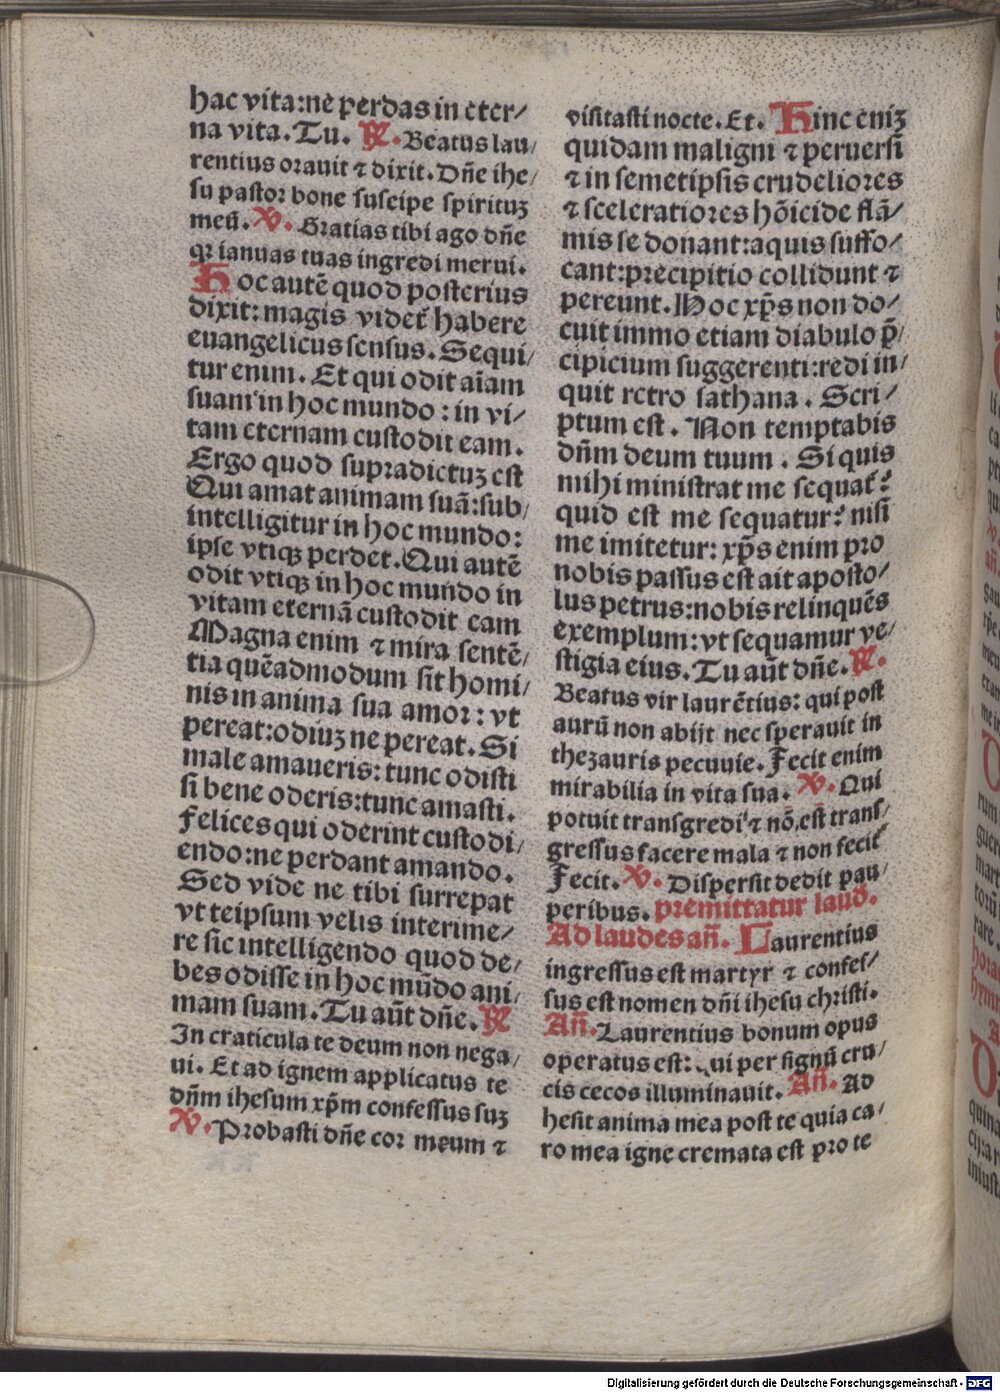 hac vita:ne perdas in eter/
na vita. Tu. R. Beatus lau/
rentius orauit ⁊ dixit. Dñe ihe/
su pastor bone suscipe spirituʒ
meū. V. Gratias tibi ago dñe
qꝛ ianuas tuas ingredi merui.
Hoc autē quod posterius
dixit: magis videt̄ habere
euangelicus sensus. Sequi/
tur enim. Et qui odit aīam
suam in hoc mundo : in vi/
tam eternam custodit eam.
Ergo quod supradictuʒ est
Qui amat animam suā:sub/
intelligitur in hoc mundo:
ipse vtiqʒ perdet. Qui autē
odit vtiqʒ in hoc mundo in
vitam eternā custodit eam
Magna enim ⁊ mira sentē/
tia quēadmodum sit homi/
nis in anima sua amor : vt
pereat:odiuʒ ne pereat. Si
male amaueris: tunc odisti
si bene oderis:tunc amasti.
Felices qui oderint custodi/
endo:ne perdant amando.
Sed vide ne tibi surrepat
vt teipsum velis interime/
re sic intelligendo quod de/
bes odisse in hoc mūdo ani/
mam suam. Tu aūt dñe. R
In craticula te deum non nega/
ui. Et ad ignem applicatus te
dñm ihesum xp̄m confessus suʒ
V. Probasti dñe cor meum ⁊
visitasti nocte. Et. Hinc eniʒ
quidam maligni ⁊ peruersi
⁊ in semetipsis crudeliores
⁊ sceleratiores hōicide flā/
mis se donant:aquis suffo/
cant:precipitio collidunt ⁊
pereunt. Hoc xp̄s non do/
cuit immo etiam diabulo p̄/
cipicium suggerenti:redi in/
quit retro sathana . Scri/
ptum est . Non temptabis
dñm deum tuum . Si quis
mihi ministrat me sequat̄?
quid est me sequatur? nisi
me imitetur: xp̄s enim pro
nobis passus est ait aposto/
lus petrus:nobis relinquēs
exemplum: vt sequamur ve/
stigia eius. Tu aūt dñe. R.
Beatus vir laurētius: qui post
aurū non abijt nec sperauit in
thezauris pecunie. Fecit enim
mirabilia in vita sua. V. Qui
potuit transgredi ⁊ nō est trans/
gressus facere mala ⁊ non fecit
Fecit. V. Dispersit dedit pau/
peribus. premittatur laud.
Ad laudes añ. Laurentius
ingressus est martyr ⁊ confes/
sus est nomen dñi ihesu christi.
Añ. Laurentius bonum opus
operatus est: qui per signū cru/
cis cecos illuminauit. Añ. Ad
hesit anima mea post te quia ca/
ro mea igne cremata est pro te
Digitalisierung gefördert durch die Deutsche Forschungsgemeinschaft - DFG